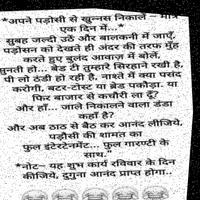 *अपने पड़ोसी से खुन्नस निकाले – मात्र
एक दिन में...*
सुबह जल्दी उठें और बालकनी में जाएँ,
पड़ोसन को देखते ही अंदर की तरफ मुँह
करते हुए बुलंद आवाज़ में बोलें,
सुनती हो... बेड टी तुम्हारे सिरहाने रखी है,
पी लो ठंडी हो रही है, नाश्ते में क्या पसंद
करोगी, बटर-टोस्ट या ब्रेड पकौड़ा. या
फिर बाजार से कचौरी ला दूँ?
और हाँ... जाले निकालने वाला डंडा
कहाँ है?
और अब ठाठ से बैठ कर आनंद लीजिये,
पड़ौसी की शामत का
फुल इंटरटेनमेंट... फुल गारण्टी के
साथ."
*नोट– यह शुभ कार्य रविवार के दिन
कीजिये, दुगुना आनंद प्राप्त होगा..